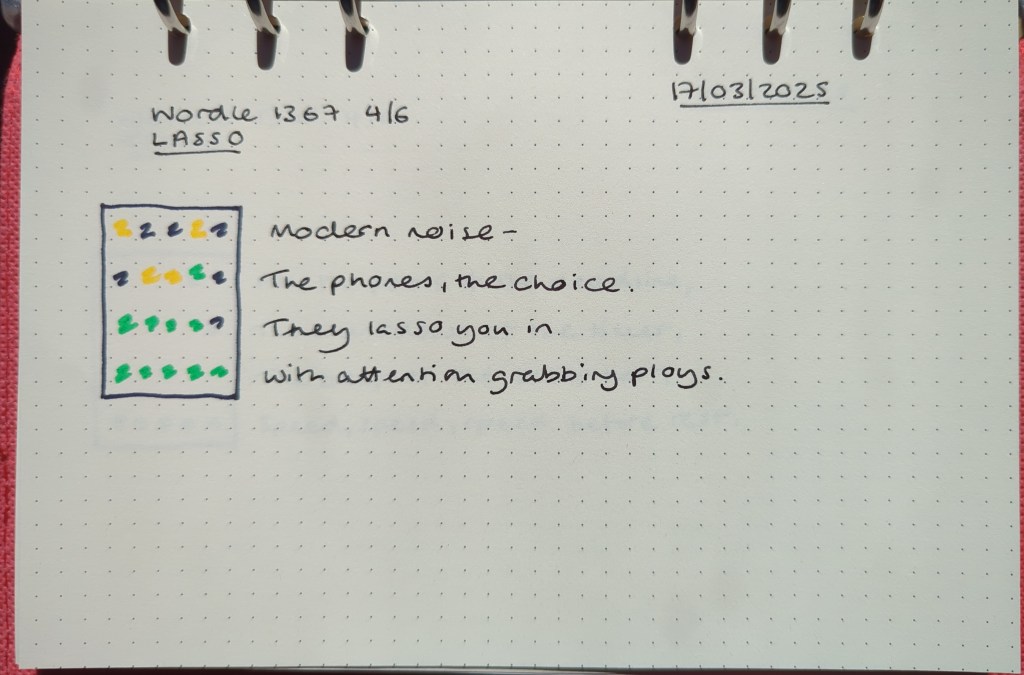 17/03/2025
Wordle 1367 4/6
LASSO
Modern noise –
The phones, the choice.
They lasso you in
with attention grabbing ploys.